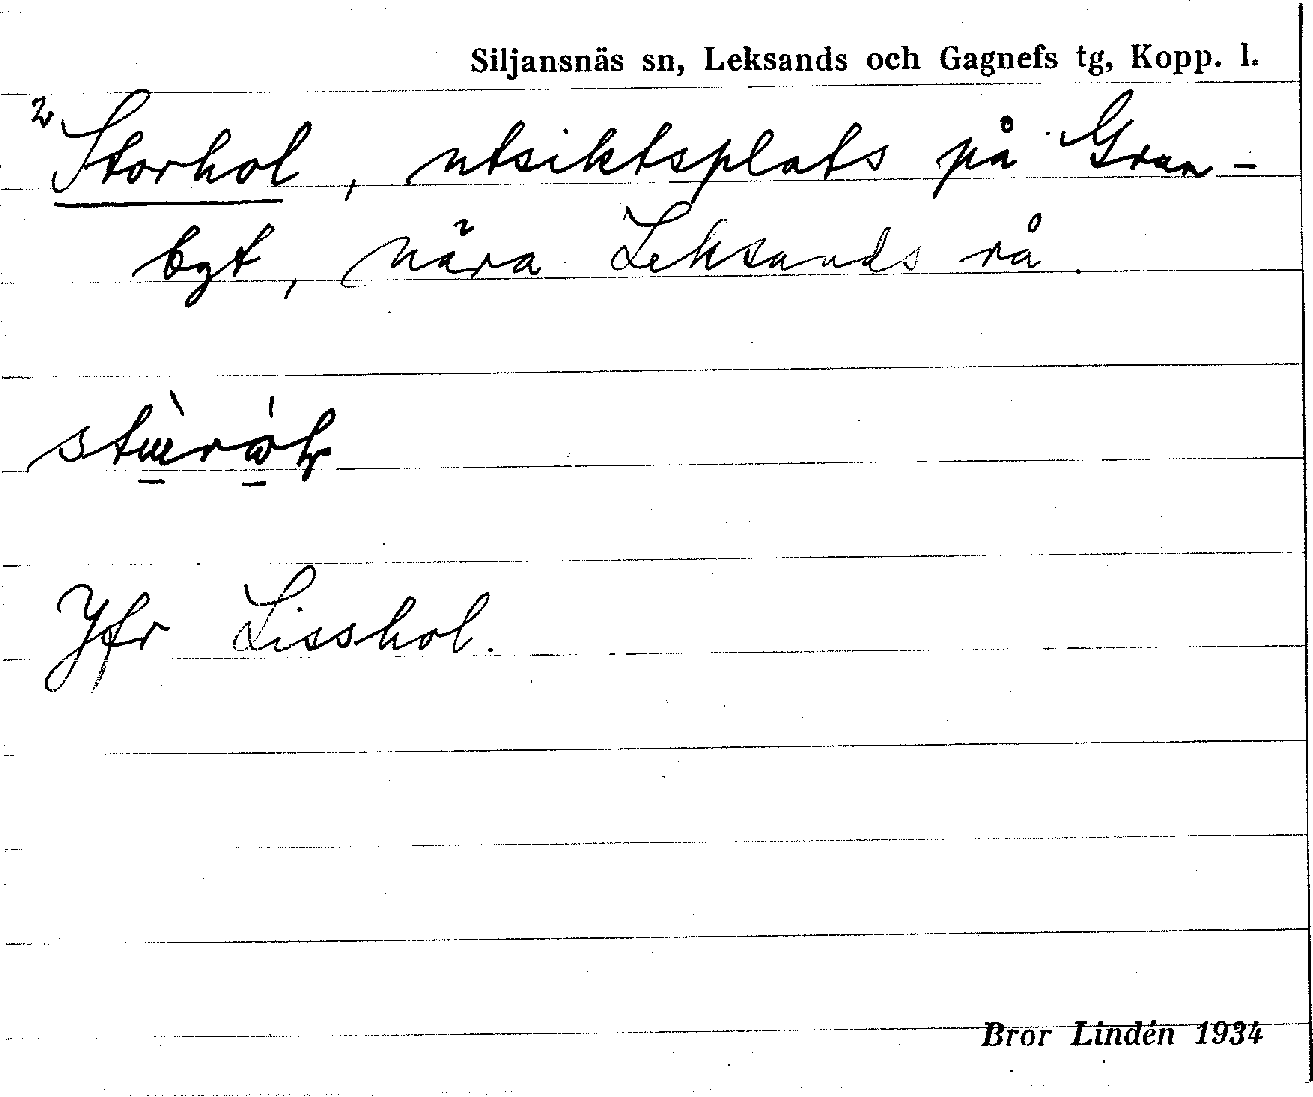 Siljansnäs sn, Leksands och Gagnefs tg, Kopp. l.
2 Storhol, utsiktsplats på Gran-
bgt, nära Leksands rå.
Jfr Lisshol.
Bror Lindén 1934